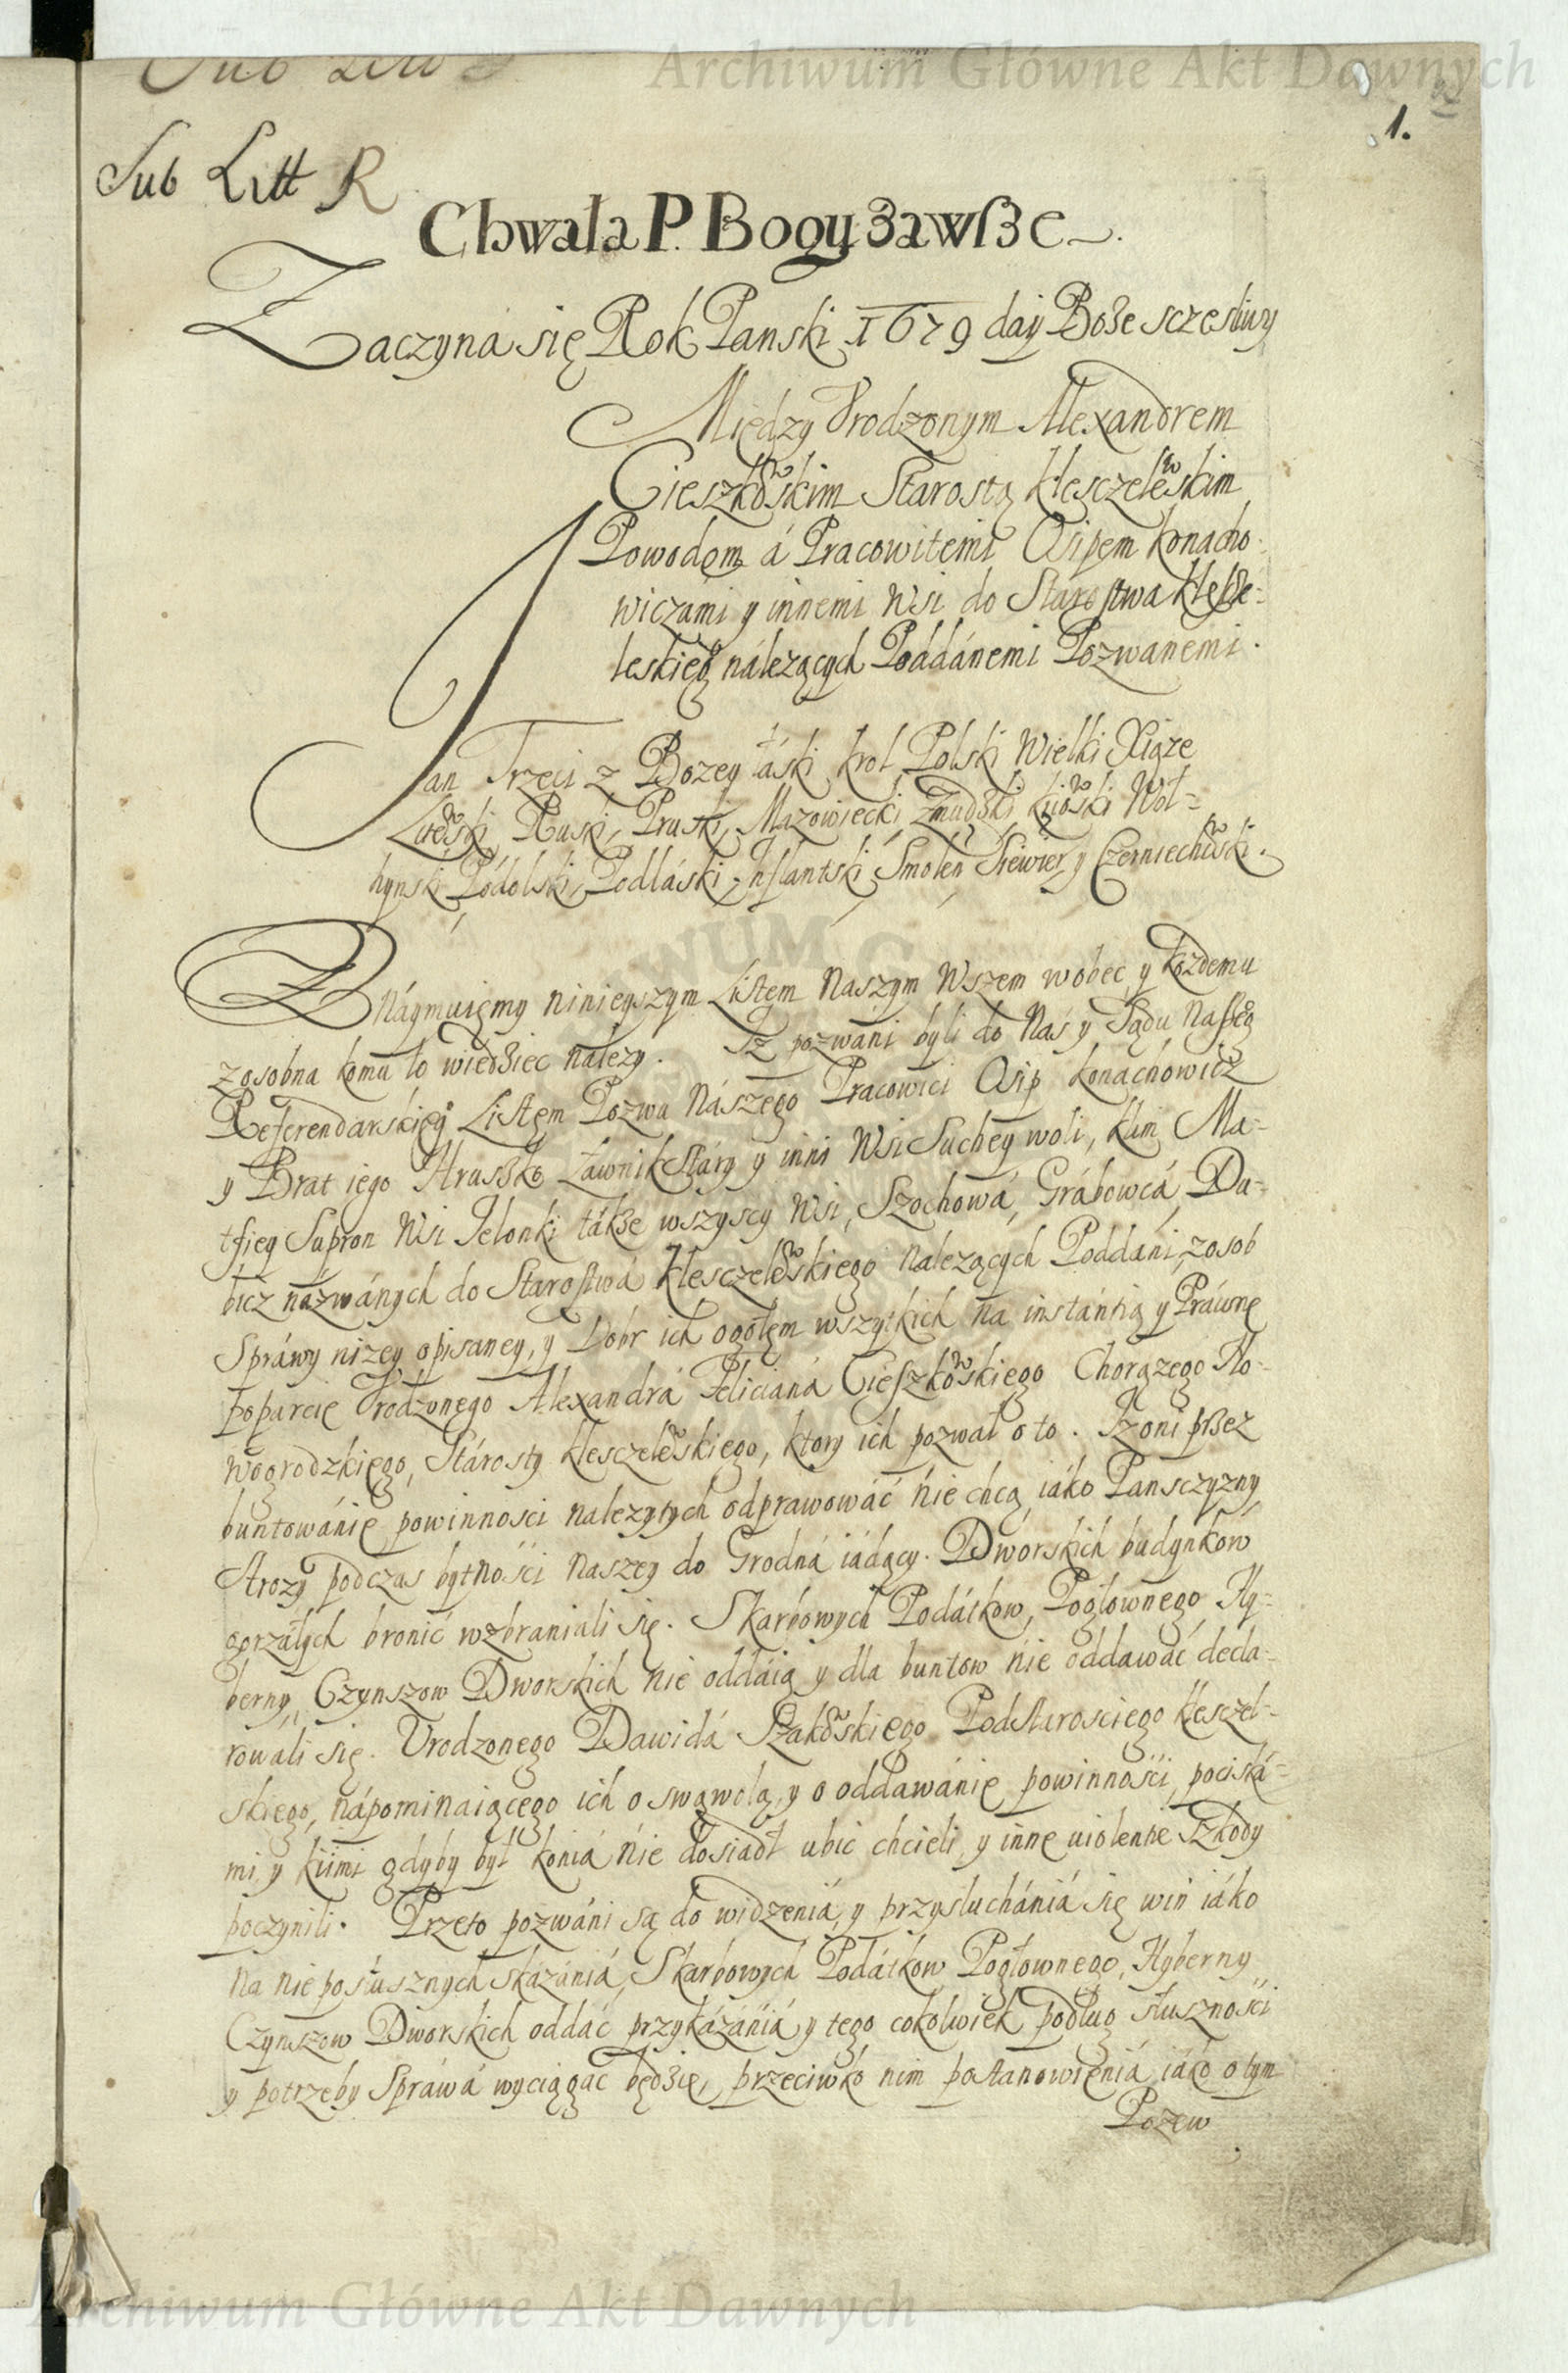 Archiwum Główne Akt Dawnych
1.
Sub Litt R
Chwała P. Bogu zawsze
Zaczyna się Rok Panski 1679 day Boże sczęsliwy
Między Vrodzonym Alexandrem
Cieszkowskim Starostą Klesczelewskim
Powodem á Pracowitemi Osipem Konacho-
wiczami y innemi Wsi do Starostwa Klesze-
leskieg należących Poddánemi Pozwanemi.
Jan Trzeci z Bozey łáski Krol Polski Wielki Xiąze
Litewski, Ruski, Pruski, Mazowiecki, Zmudzki, Kijowski Woł-
hynski, Podolski, Podláski, Inflantski, Smolen Siewier, y Czerniechowski.
Znáymuiemy ninieyszym Listem Naszym Wszem wobec y kożdemu
zosobna komu to wiedziec nalezy. Iz pozwáni byli do Nas y Sądu Naszeg
Referendarskieg Listem Pozwu Nászego Pracowici Osip Konachowicz
y Brat iego Hruszko Ławnik Stáry y inni Wsi Suchey woli, Klim Ma-
tfiey Supron Wsi Jelonki tákze wszyscy Wsi, Szochowá, Grábowcá, Du-
bicz názwánych do Starostwá Klesczelewskiego nalezących Poddáni, zosob
Spráwy nizey opisaney, y Dobr ich ogołem wszytkich na instántią y Práwne
poparcie Vrodzonego Alexandrá Feliciáná Cieszkowskiego Chorązego No-
wogrodzkiego, Stárosty Klesczelewskiego, ktory ich pozwał o to. Iz oni przez
buntowánie powinnosci nalezytych odprawowáć nie chcą iáko Panscyzny
Strozy podczas bytności Naszey do Grodná iádący. Dworskich budynkow
gorzáłych bronić wzbraniáli się. Skarbowych Podátkow, Pogłownego Hy-
berny, Czynszow Dworskich nie oddáią y dla buntow nie oddawáć decla-
rowáli się. Urodzonego Dawidá Szakowskiego Podstarosciego Kleszczel-
skiego, nápomináiącego ich o swąwolą, y o oddawánie powinnośći, pociská-
mi, y kiimi gdyby był koniá nie dosiadł ubić chcieli, y inne violentie Szkody
poczynili. Przeto pozwáni są do widzeniá, y przysłuchániá się win iáko
na nieposłusznych skazániá, Skarbowych Podátkow Pogłownego, Hyberny
Czynszow Dworskich oddáć przykázániá, y tego cokolwiek podług słusznośći
y potrzeby Spráwá wyciągać będzie, przeciwko nim postanowieniá iáko o tym
Pozew
Archiwum Główne Akt Dawnych